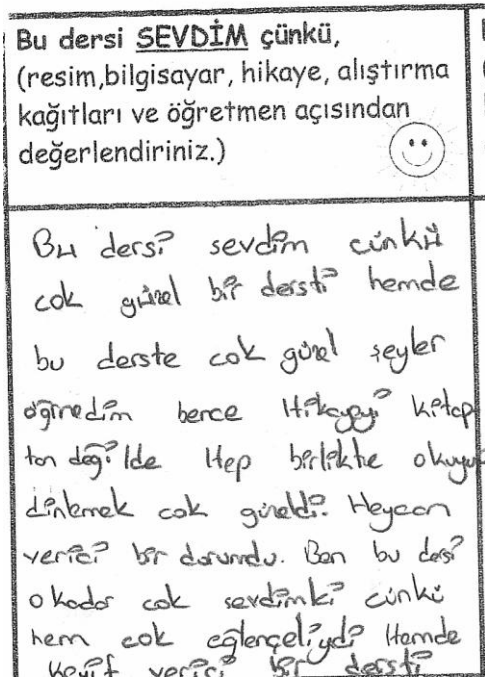 Bu dersi SEVDİM çünkü,
(resim,bilgisayar, hikaye, alıştırma
kağıtları ve öğretmen açısından
değerlendiriniz.)
Bu dersi sevdim cünkü
cok güzel bir dersti hemde
bu derste cok güzel şeyler
öğrnedim berce Hikayeyi kitap
tan değilde Hep birlikhe okuyup
dinlemek cok güzeldi. Heyecan
verici bir durumdu. Ben bu dersi
o kadar cok sevdimki cünkü
hem cok eğlençeliydi Hemde
keyif verici bir dersti